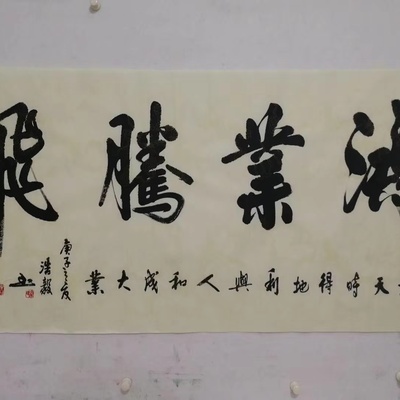 鴻業騰飛
天時得地利與人和成大業
庚子之夏
浩毅
书